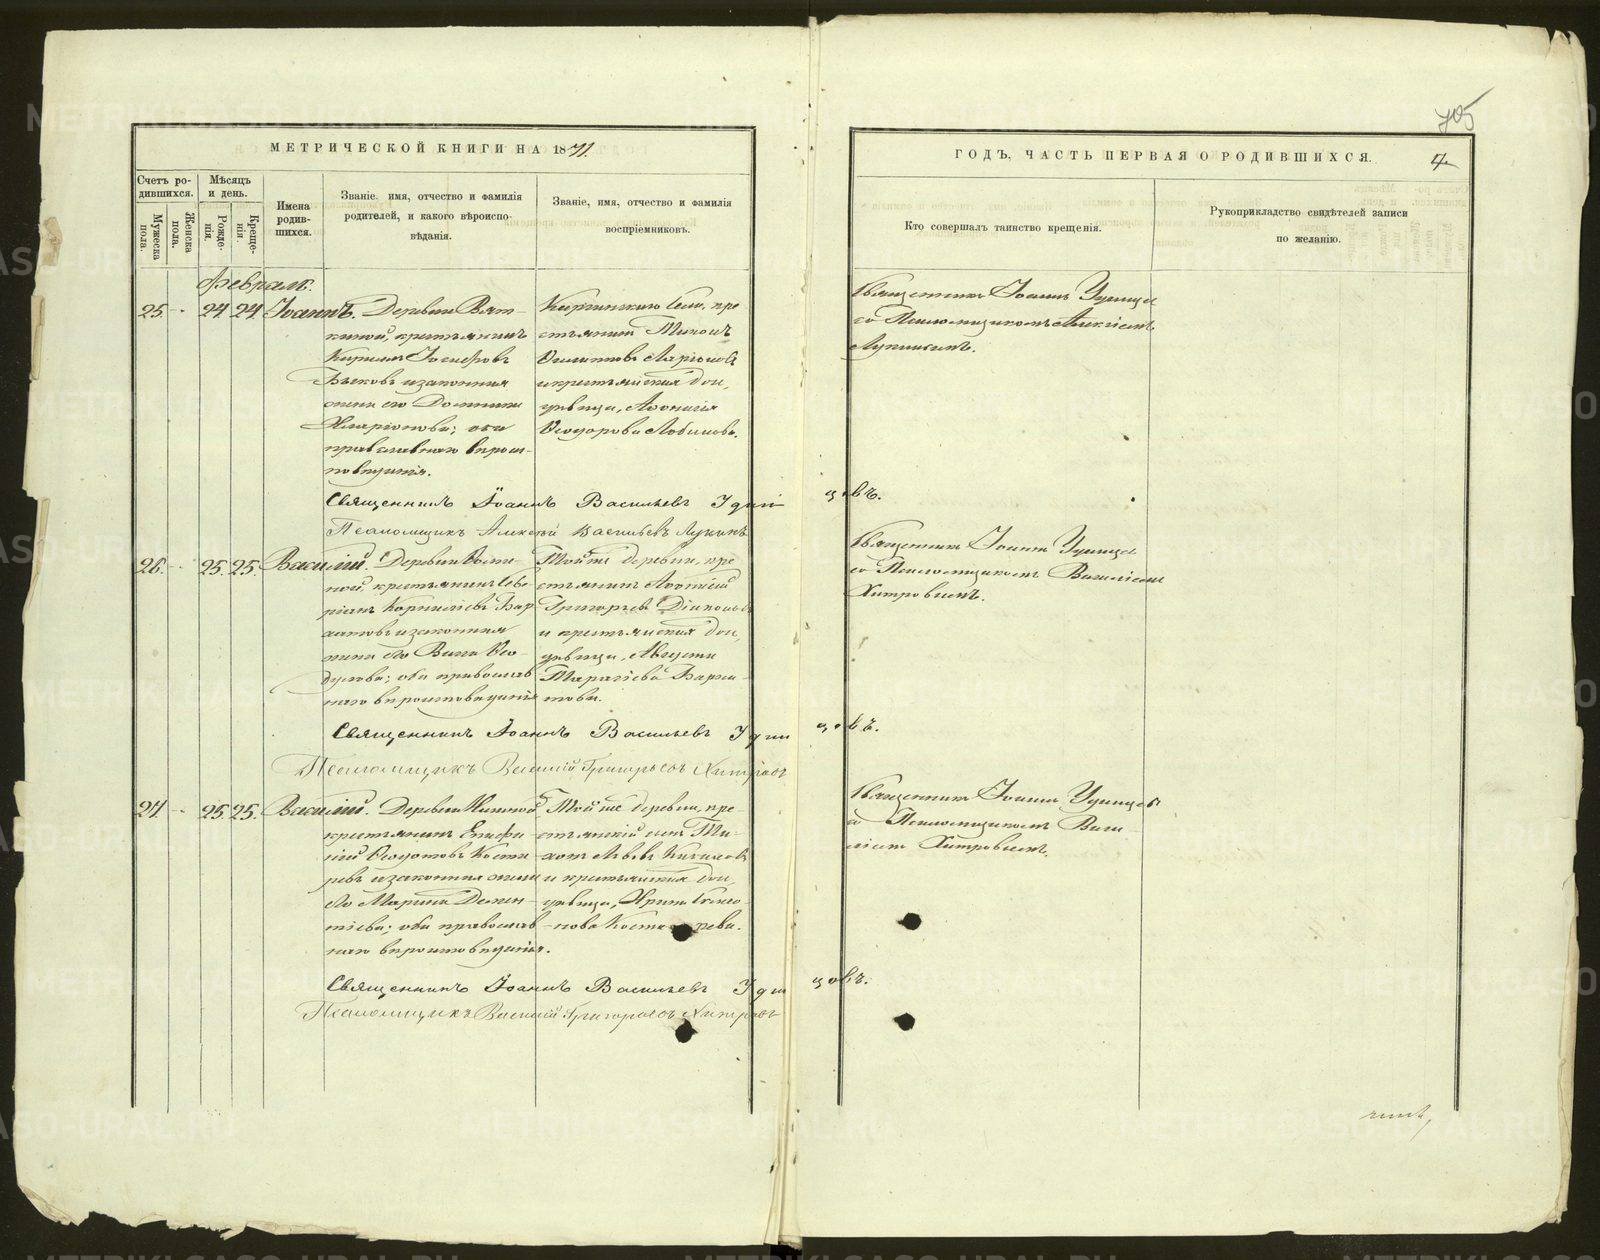 705
МЕТРИЧЕСКОЙ КНИГИ НА 1871.
Счетъ родившихся.
Мужеска пола.
Женска пола.
Мѣсяцъ и день.
Рожденія.
Крещенія.
Имена родившихся.
Званіе, имя, отчество и фамилія
родителей, и какого вѣроиспо-
вѣданія.
Званіе, имя, отчество и фамилія
воспріемниковъ.
ГОДЪ, ЧАСТЬ ПЕРВАЯ О РОДИВШИХСЯ.
Кто совершалъ таинство крещенія.
Рукоприкладство свидѣтелей записи
по желанію.
Февраль.
25. 24. 24. Іоаннъ.
Деревни Вят-
киной, крестьянинъ
Кириллъ Іосифовъ
Быковъ и законная
жена его Домника
Иларіонова; оба
православнаго вѣроис-
повѣданія.
Киргинскаго села, кре-
стьянинъ Тихонъ
Филипповъ Ларіоновъ
и крестьянская дочь,
дѣвица,
Ѳеодорова
Священникъ Іоаннъ Удинцевъ
съ Псаломщикомъ Алексѣемъ
Лукинымъ.
Священникъ Іоаннъ Васильевъ Удинцовъ.
Псаломщикъ Алексѣй Васильевъ Лукинъ
26. 25. 25. Василій.
Деревни
крестьянинъ Севе-
ріанъ Корниліевъ Бар-
хатовъ и законная
жена его Васса Ѳео-
дулова; оба православ-
наго вѣроисповѣданія
Той же деревни, кре-
стьянинъ
Григорьевъ Діаконовъ
и крестьянская дочь,
дѣвица, Августа
Тарасіева Барха-
това.
Священникъ Іоаннъ Удинцевъ
съ Псаломщикомъ Василіемъ
Хитровымъ.
Священникъ Іоаннъ Васильевъ Удинцовъ.
Псаломщикъ Василій Григорьевъ Хитровъ
27. 25. 25. Василій.
Деревни
крестьянинъ Епифа-
ній Ѳедотовъ Косты-
ревъ и законная жена
его Марина Демен-
тіева; оба православ-
наго вѣроисповѣданія.
Той же деревни, кре-
стьянскій сынъ Ти-
и крестьянская дочь,
дѣвица, Ирина
нова Костырева.
Священникъ Іоаннъ Удинцевъ
съ Псаломщикомъ Васи-
ліемъ Хитровымъ.
Священникъ Іоаннъ Васильевъ Удинцовъ.
Псаломщикъ Василій Григорьевъ Хитровъ
METRIKI.GASO-URAL.RU